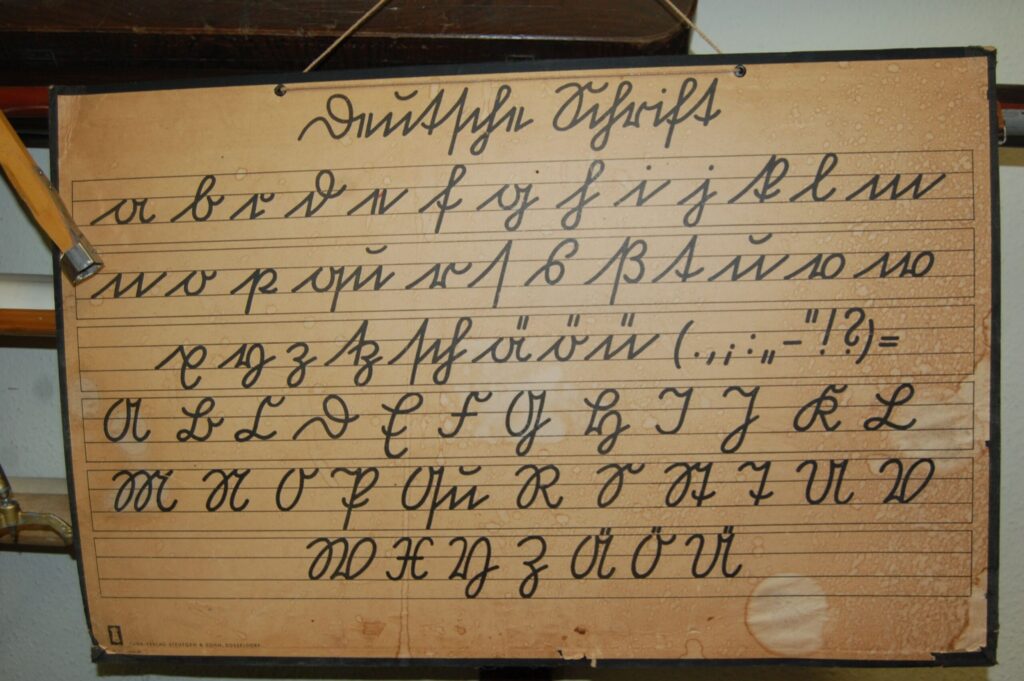 Deutsche Schrift
a b c d e f g h i j k l m
n o p qu r ſ s ß t u v w
x y z tz ſch ä ö ü ( . , ; : „ - " ! ? ) =
A B C D E F G H I J K L
M N O P Qu R S St T U V
W X Y Z Ä Ö Ü